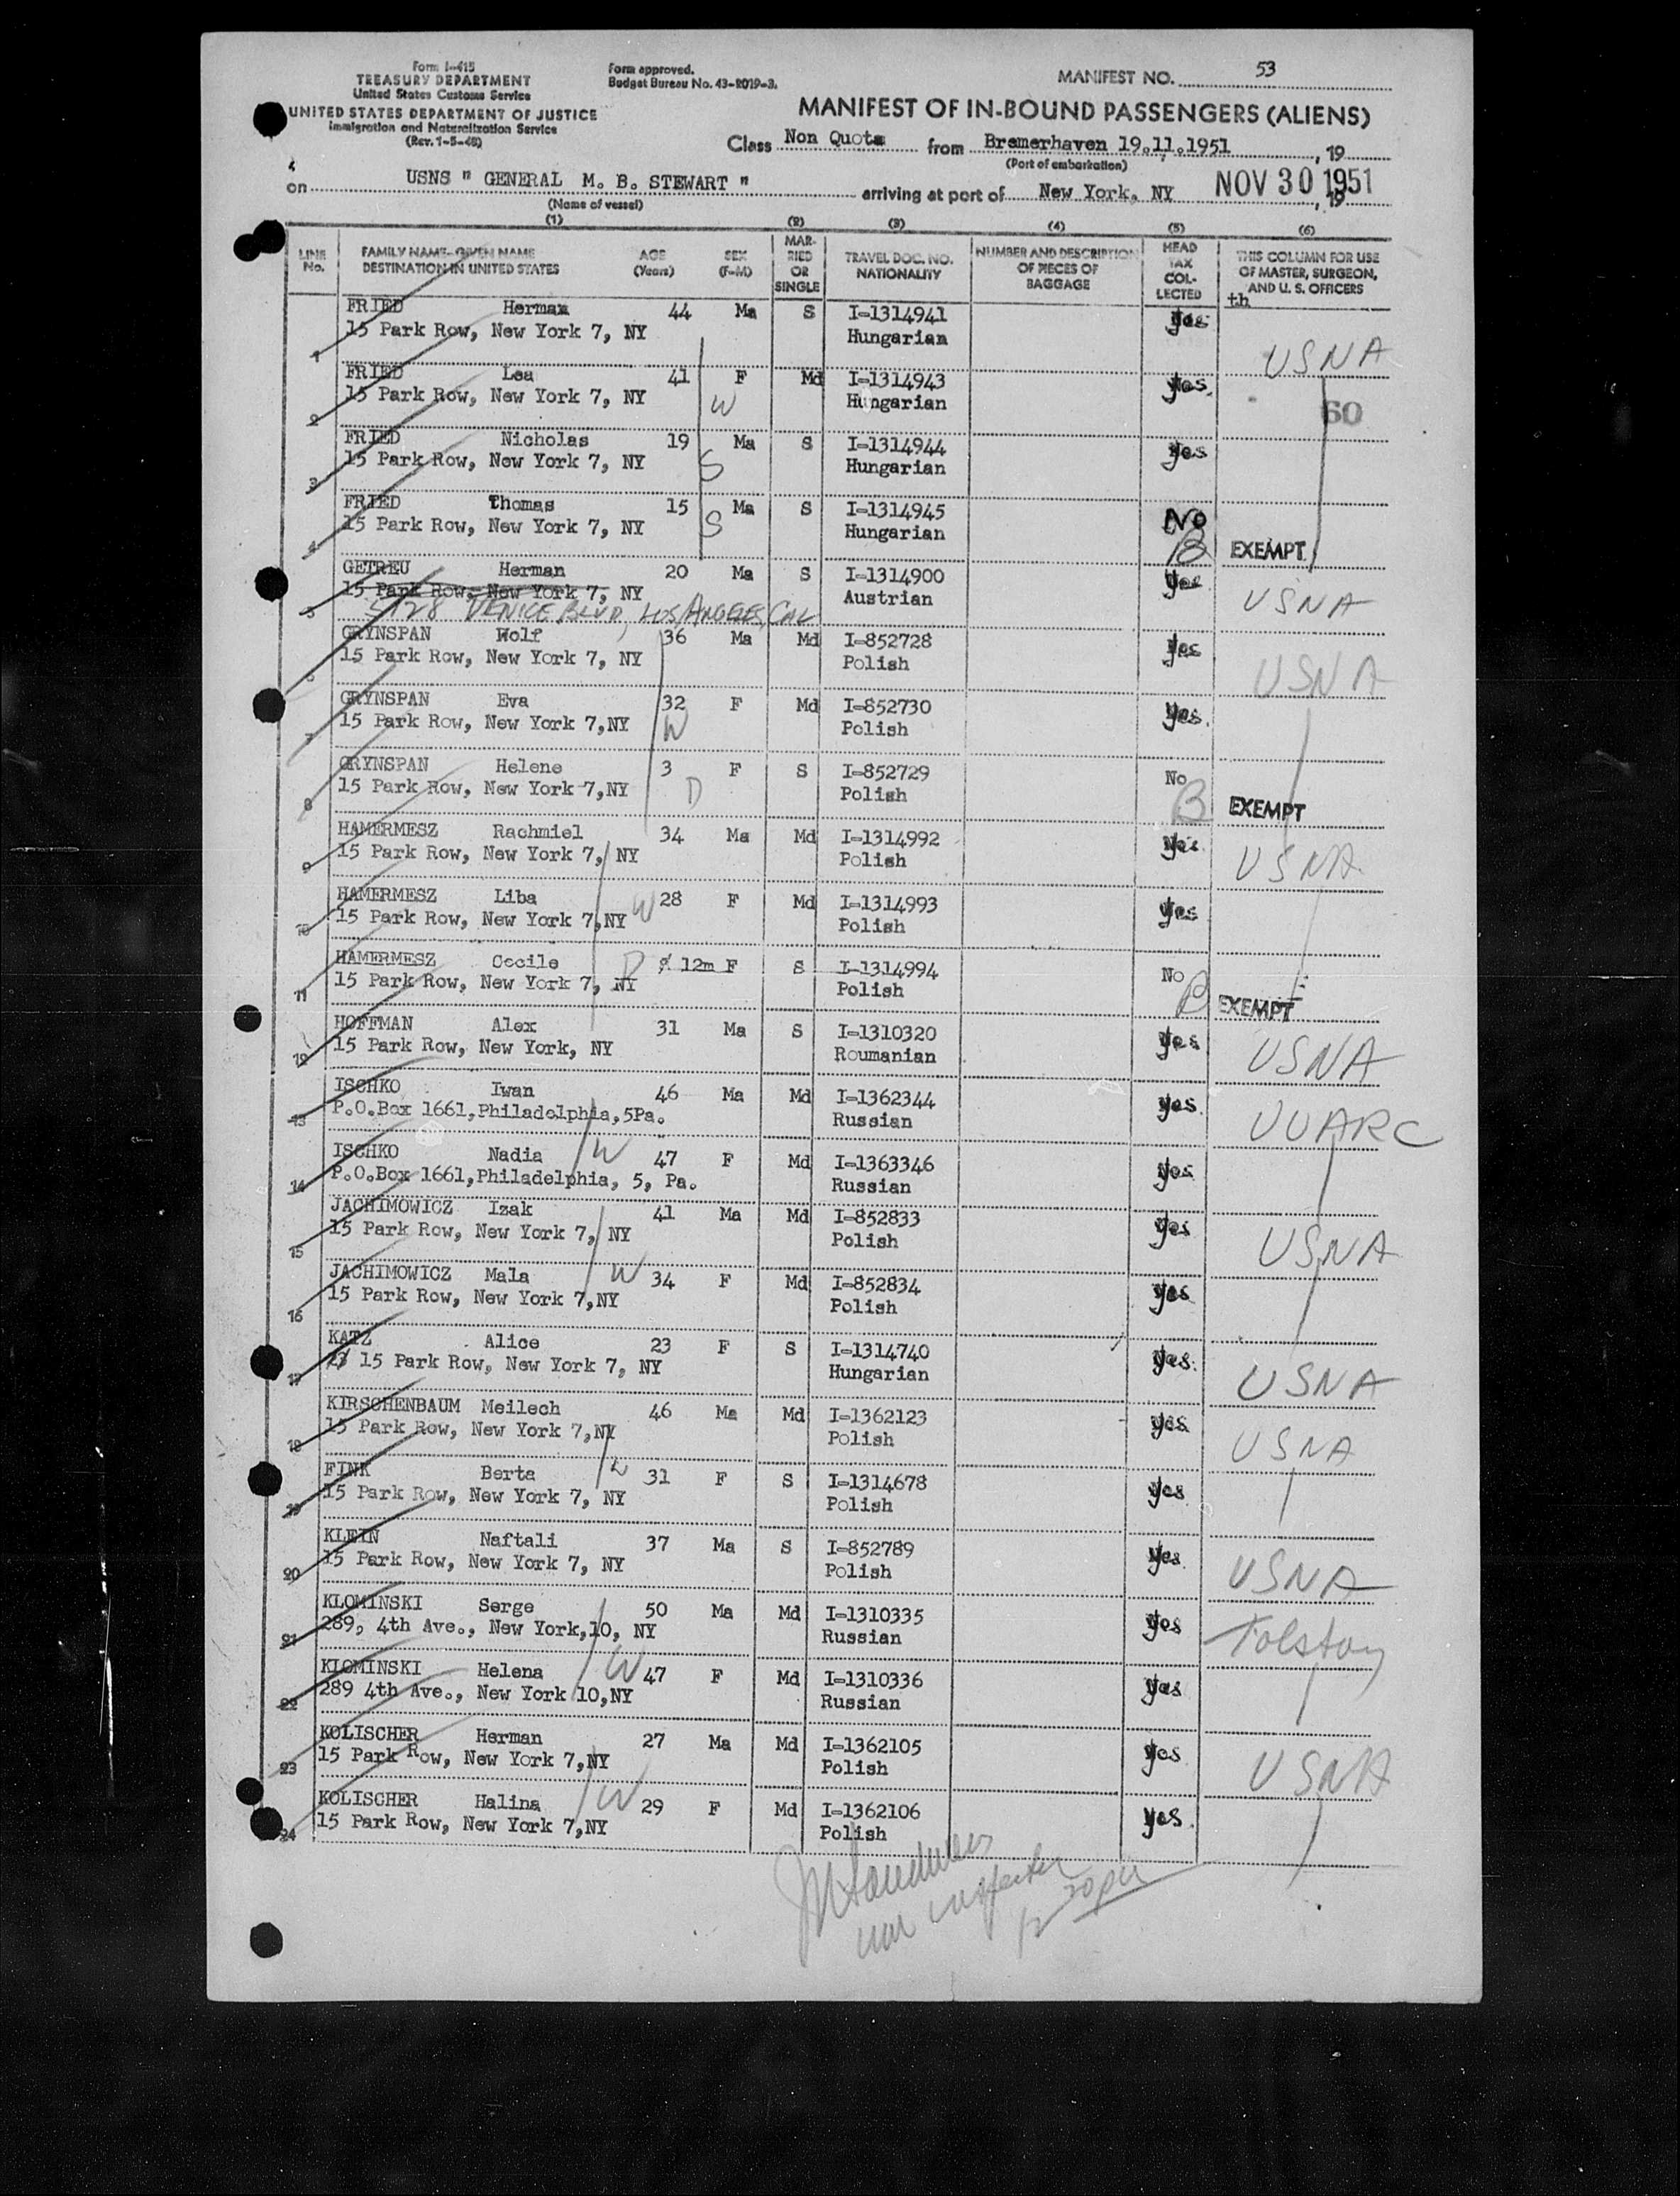 Form I-415
TREASURY DEPARTMENT
United States Customs Service
UNITED STATES DEPARTMENT OF JUSTICE
Immigration and Naturalization Service
(Rev. 1-5-48)
Form approved.
Budget Bureau No. 43-R019-3.
MANIFEST NO. 53
MANIFEST OF IN-BOUND PASSENGERS (ALIENS)
Class Non Quota from Bremerhaven 19.11.1951, 19
(Port of embarkation)
on USNS " GENERAL M. B. STEWART " arriving at port of New York, NY NOV 30 1951, 19
(Name of vessel)
(1) (2) (3) (4) (5) (6)
LINE No. FAMILY NAME-GIVEN NAME DESTINATION IN UNITED STATES AGE (Years) SEX (F-M) MARRIED OR SINGLE TRAVEL DOC. NO. NATIONALITY NUMBER AND DESCRIPTION OF PIECES OF BAGGAGE HEAD TAX COLLECTED THIS COLUMN FOR USE OF MASTER, SURGEON, AND U. S. OFFICERS
th
FRIED Herman 44 Ma S I-1314941 Yes
1 15 Park Row, New York 7, NY Hungarian USNA
FRIED Lea 41 F Md I-1314943 Yes
2 15 Park Row, New York 7, NY W Hungarian 60
FRIED Nicholas 19 Ma S I-1314944 Yes
3 15 Park Row, New York 7, NY S Hungarian
FRIED Thomas 15 Ma S I-1314945 No
4 15 Park Row, New York 7, NY S Hungarian B EXEMPT
GETREU Herman 20 Ma S I-1314900 Yes
15 Park Row, New York 7, NY Austrian USNA
5 5128 VENICE BLVD, LOS ANGELES, CAL
GRYNSPAN Wolf 36 Ma Md I-852728 Yes
6 15 Park Row, New York 7, NY Polish USNA
GRYNSPAN Eva 32 F Md I-852730 Yes
7 15 Park Row, New York 7,NY W Polish
GRYNSPAN Helene 3 F S I-852729 No
8 15 Park Row, New York 7,NY D Polish B EXEMPT
HAMERMESZ Rachmiel 34 Ma Md I-1314992 Yes
9 15 Park Row, New York 7, NY Polish USNA
HAMERMESZ Liba 28 F Md I-1314993 Yes
10 15 Park Row, New York 7,NY W Polish
HAMERMESZ Cecile D 12m F S I-1314994 No
11 15 Park Row, New York 7, NY Polish B EXEMPT
HOFFMAN Alex 31 Ma S I-1310320 Yes
12 15 Park Row, New York, NY Roumanian USNA
ISCHKO Iwan 46 Ma Md I-1362344 Yes
13 P.O.Box 1661,Philadelphia,5Pa. Russian UUARC
ISCHKO Nadia W 47 F Md I-1363346 Yes
14 P.O.Box 1661,Philadelphia, 5, Pa. Russian
JACHIMOWICZ Izak 41 Ma Md I-852833 Yes
15 15 Park Row, New York 7, NY Polish USNA
JACHIMOWICZ Mala W 34 F Md I-852834 Yes
16 15 Park Row, New York 7,NY Polish
KATZ Alice 23 F S I-1314740 Yes
17 23 15 Park Row, New York 7, NY Hungarian USNA
KIRSCHENBAUM Meilech 46 Ma Md I-1362123 Yes
18 15 Park Row, New York 7,NY Polish USNA
FINK Berta W 31 F S I-1314678 Yes
19 15 Park Row, New York 7, NY Polish
KLEIN Naftali 37 Ma S I-852789 Yes
20 15 Park Row, New York 7, NY Polish USNA
KLOMINSKI Serge 50 Ma Md I-1310335 Yes
21 289, 4th Ave., New York,10, NY Russian Tolstoy
KLOMINSKI Helena W 47 F Md I-1310336 Yes
22 289 4th Ave., New York 10,NY Russian
KOLISCHER Herman 27 Ma Md I-1362105 Yes
23 15 Park Row, New York 7,NY Polish USNA
KOLISCHER Halina W 29 F Md I-1362106 Yes
24 15 Park Row, New York 7,NY Polish